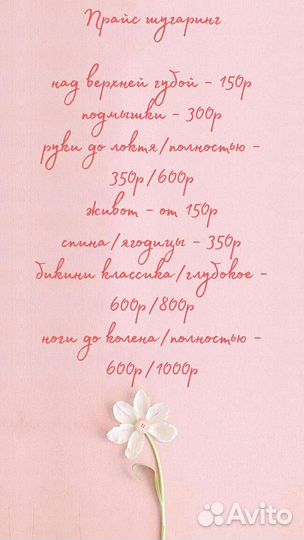 Прайс шугаринг
над верхней губой - 150р
подмышки - 300р
руки до локтя/полностью -
350р/600р
живот - от 150р
спина/ягодицы - 350р
бикини классика/глубокое -
600р/800р
ноги до колена/полностью -
600р/1000р
Avito